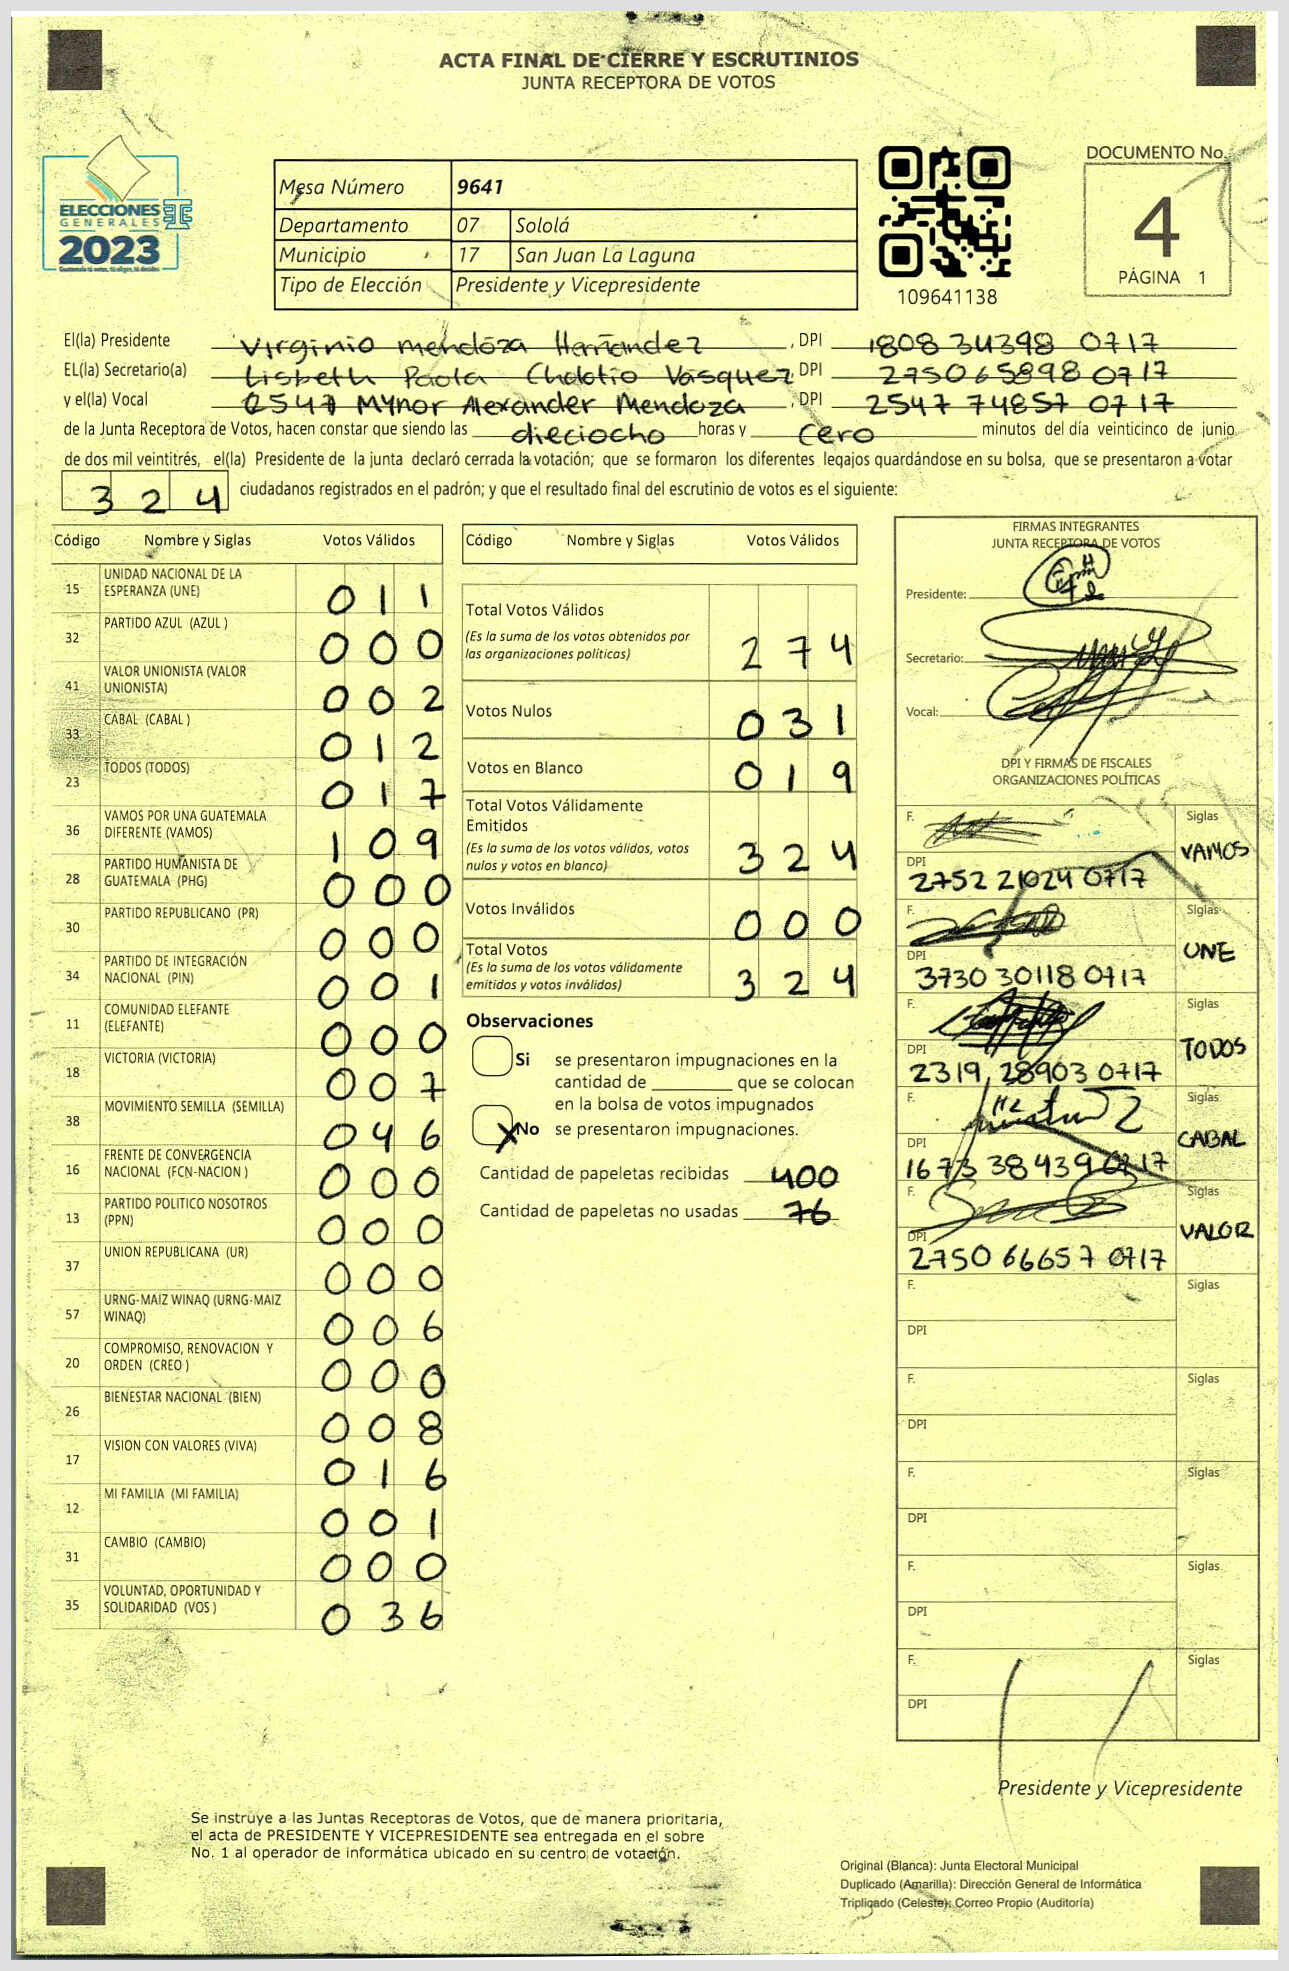 ACTA FINAL DE CIERRE Y ESCRUTINIOS
JUNTA RECEPTORA DE VOTOS
ELECCIONES
GENERALES
2023
Mesa Número 9641
Departamento 07 Sololá
Municipio 17 San Juan La Laguna
Tipo de Elección Presidente y Vicepresidente
109641138
DOCUMENTO No.
4
PÁGINA 1
El(la) Presidente Virginio mendóza Hernández, DPI 1808 34398 0717
EL(la) Secretario(a) Lisbeth Paola Cholotio Vásquez, DPI 2750 65898 0717
y el(la) Vocal 2547 Mynor Alexander Mendoza, DPI 2547 74857 0717
de la Junta Receptora de Votos, hacen constar que siendo las dieciocho horas y cero minutos del día veinticinco de junio
de dos mil veintitrés, el(la) Presidente de la junta declaró cerrada la votación; que se formaron los diferentes legajos guardándose en su bolsa, que se presentaron a votar
324 ciudadanos registrados en el padrón; y que el resultado final del escrutinio de votos es el siguiente:
Código Nombre y Siglas Votos Válidos
15 UNIDAD NACIONAL DE LA ESPERANZA (UNE) 011
32 PARTIDO AZUL (AZUL ) 000
41 VALOR UNIONISTA (VALOR UNIONISTA) 002
33 CABAL (CABAL ) 012
23 TODOS (TODOS) 017
36 VAMOS POR UNA GUATEMALA DIFERENTE (VAMOS) 109
28 PARTIDO HUMANISTA DE GUATEMALA (PHG) 000
30 PARTIDO REPUBLICANO (PR) 000
34 PARTIDO DE INTEGRACIÓN NACIONAL (PIN) 001
11 COMUNIDAD ELEFANTE (ELEFANTE) 000
18 VICTORIA (VICTORIA) 007
38 MOVIMIENTO SEMILLA (SEMILLA) 046
16 FRENTE DE CONVERGENCIA NACIONAL (FCN-NACION ) 000
13 PARTIDO POLITICO NOSOTROS (PPN) 000
37 UNION REPUBLICANA (UR) 000
57 URNG-MAIZ WINAQ (URNG-MAIZ WINAQ) 006
20 COMPROMISO, RENOVACION Y ORDEN (CREO ) 000
26 BIENESTAR NACIONAL (BIEN) 008
17 VISION CON VALORES (VIVA) 016
12 MI FAMILIA (MI FAMILIA) 001
31 CAMBIO (CAMBIO) 000
35 VOLUNTAD, OPORTUNIDAD Y SOLIDARIDAD (VOS ) 036
Código Nombre y Siglas Votos Válidos
Total Votos Válidos
(Es la suma de los votos obtenidos por
las organizaciones políticas) 274
Votos Nulos 031
Votos en Blanco 019
Total Votos Válidamente
Emitidos
(Es la suma de los votos válidos, votos
nulos y votos en blanco) 324
Votos Inválidos 000
Total Votos
(Es la suma de los votos válidamente
emitidos y votos inválidos) 324
Observaciones
Si se presentaron impugnaciones en la
cantidad de ________ que se colocan
en la bolsa de votos impugnados
X No se presentaron impugnaciones.
Cantidad de papeletas recibidas 400
Cantidad de papeletas no usadas 76
FIRMAS INTEGRANTES
JUNTA RECEPTORA DE VOTOS
Presidente:
Secretario:
Vocal:
DPI Y FIRMAS DE FISCALES
ORGANIZACIONES POLÍTICAS
F. Siglas VAMOS
DPI 2752 21024 0717
F. Siglas UNE
DPI 3730 30118 0717
F. Siglas TODOS
DPI 2319 28903 0717
F. Siglas CABAL
DPI 1673 38439 0717
F. Siglas VALOR
DPI 2750 66657 0717
F. Siglas
DPI
F. Siglas
DPI
F. Siglas
DPI
F. Siglas
DPI
F. Siglas
DPI
Presidente y Vicepresidente
Se instruye a las Juntas Receptoras de Votos, que de manera prioritaria,
el acta de PRESIDENTE Y VICEPRESIDENTE sea entregada en el sobre
No. 1 al operador de informática ubicado en su centro de votación.
Original (Blanca): Junta Electoral Municipal
Duplicado (Amarilla): Dirección General de Informática
Triplicado (Celeste): Correo Propio (Auditoría)